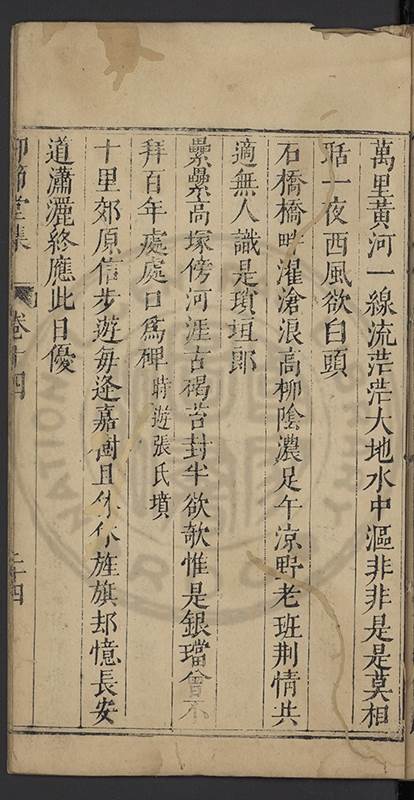 萬里黃河一線流茫茫大地水中漚非非是是莫相
聒一夜西風欲白頭
石橋橋畔濯滄浪高柳陰濃足午凉野老班荆情共
適無人識是瑣垣郎
纍纍高塚傍河涯古碣苔封半欲欹惟是銀璫曾不
拜百年處處口爲碑時遊張氏墳
十里郊原信步遊每逢嘉樹且休休旌旗却憶長安
道瀟灑終應此日優
仰節堂集 卷十四